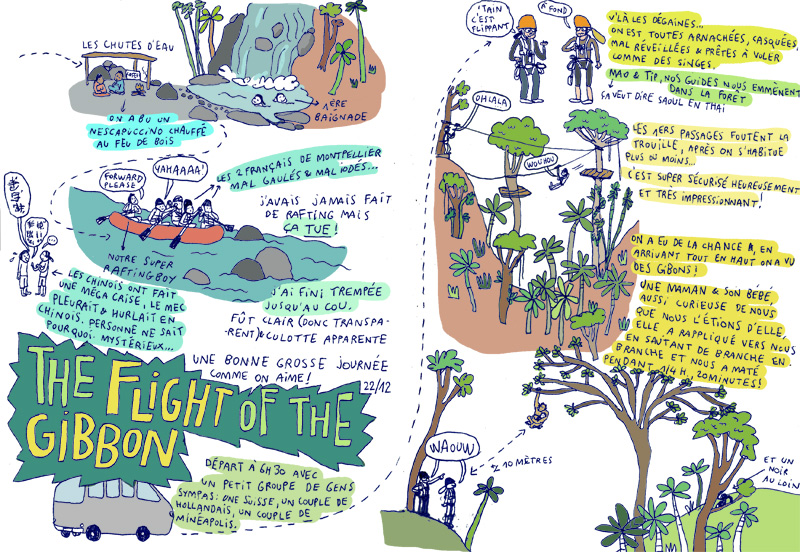 LES CHUTES D'EAU
1ÈRE
BAIGNADE
ON A BU UN
NESCAPUCCINO CHAUFFÉ
AU FEU DE BOIS
FORWARD
PLEASE
YAHAAAA!
LES 2 FRANÇAIS DE MONTPELLIER
MAL GAULÉS & MAL IODÉS...
J'AVAIS JAMAIS FAIT
DE RAFTING MAIS
ÇA TUE!
NOTRE SUPER
RAFTINGBOY
LES CHINOIS ONT FAIT
UNE MÉGA CRISE, LE MEC
PLEURAIT & HURLAIT EN
CHINOIS. PERSONNE NE SAIT
POURQUOI. MYSTÉRIEUX...
J'AI FINI TREMPÉE
JUSQU'AU COU.
FÛT CLAIR (DONC TRANSPA-
RENT) & CULOTTE APPARENTE
UNE BONNE GROSSE JOURNÉE
COMME ON AIME!
22/12
THE FLIGHT OF THE
GIBBON
DÉPART À 6H30 AVEC
UN PETIT GROUPE DE GENS
SYMPAS: UNE SUISSE, UN COUPLE DE
HOLLANDAIS, UN COUPLE DE
MINÉAPOLIS.
'TAIN
C'EST
FLIPPANT
À FOND
V'LÀ LES DÉGAINES...
ON EST TOUTES ARNACHÉES, CASQUÉES,
MAL RÉVEILLÉES & PRÊTES À VOLER
COMME DES SINGES.
MAO & TIP, NOS GUIDES NOUS EMMÈNENT
DANS LA FORÊT
ÇA VEUT DIRE SAOUL EN THAI
OH LALA
WOUHOU
LES 1ERS PASSAGES FOUTENT LA
TROUILLE, APRÈS ON S'HABITUE
PLUS OU MOINS...
C'EST SUPER SÉCURISÉ HEUREUSEMENT
ET TRÈS IMPRESSIONNANT!
ON A EU DE LA CHANCE &, EN
ARRIVANT TOUT EN HAUT ON A VU
DES GIBONS!
UNE MAMAN & SON BÉBÉ,
AUSSI CURIEUSE DE NOUS
QUE NOUS L'ÉTIONS D'ELLE,
ELLE A RAPPLIQUÉ VERS NOUS
EN SAUTANT DE BRANCHE EN
BRANCHE ET NOUS A MATÉ
PENDANT 1/4 H, 20 MINUTES!
WAOUW
± 10 MÈTRES
ET UN
NOIR
AU
LOIN